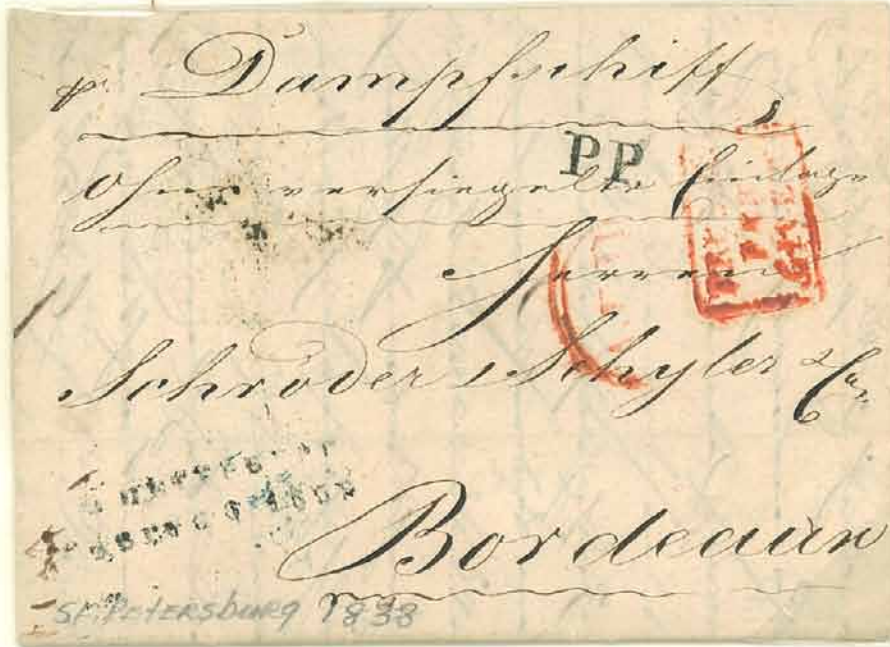 pr. Dampfschiff
PP
Ohne versiegelte Einlage
Herren
Schröder Schyler & Co.
Bordeaux
St. Petersburg 1838